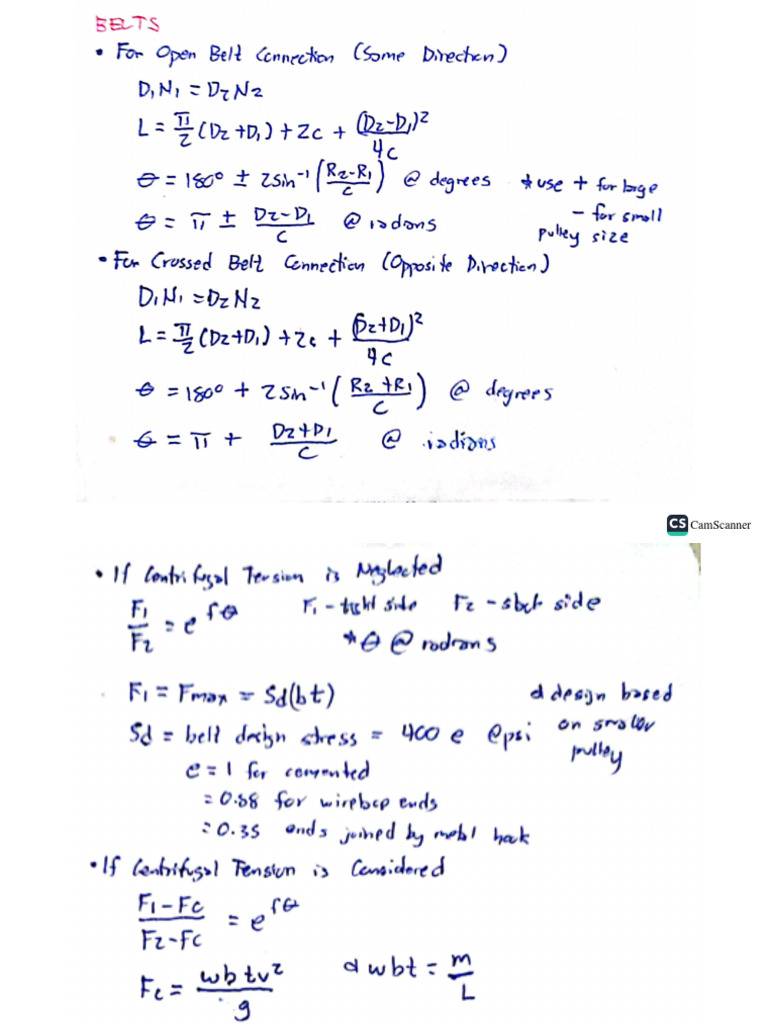 BELTS
• For Open Belt Connection (Same Direction)
D₁N₁ = D₂N₂
L = π/2 (D₂ + D₁) + 2c + (D₂-D₁)²/4c
θ = 180° ± 2sin⁻¹ (R₂-R₁/c) @ degrees * use + for large
θ = π ± D₂-D₁/c @ radians - for small
pulley size
• For Crossed Belt Connection (Opposite Direction)
D₁N₁ = D₂N₂
L = π/2 (D₂+D₁) + 2c + (D₂+D₁)²/4c
θ = 180° + 2sin⁻¹ (R₂+R₁/c) @ degrees
θ = π + D₂+D₁/c @ radians
CS CamScanner
• If Centrifugal Tension is Neglected
F₁/F₂ = e^fθ F₁ - tight side F₂ - slack side
* θ @ radians
F₁ = Fmax = Sd(bt) design based
Sd = belt design stress = 400 e @psi on smaller
pulley
e = 1 for cemented
= 0.88 for wirelace ends
= 0.35 ends joined by metal hook
• If Centrifugal Tension is Considered
F₁-Fc/F₂-Fc = e^fθ
Fc = wbtv²/g wbt = m/L